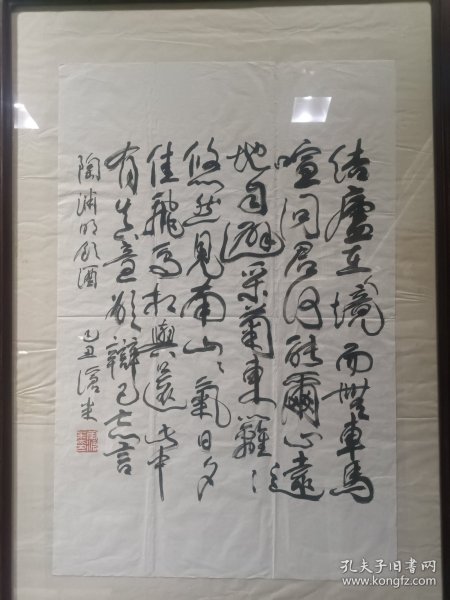 結廬在境而無車馬
喧問君何能爾心遠
地自偏采菊東籬下
悠然見南山〻氣日夕
佳飛鳥相與還此中
有真意欲辯已忘言
陶渊明飲酒
乙丑
孔夫子旧书网
www.kongfz.com